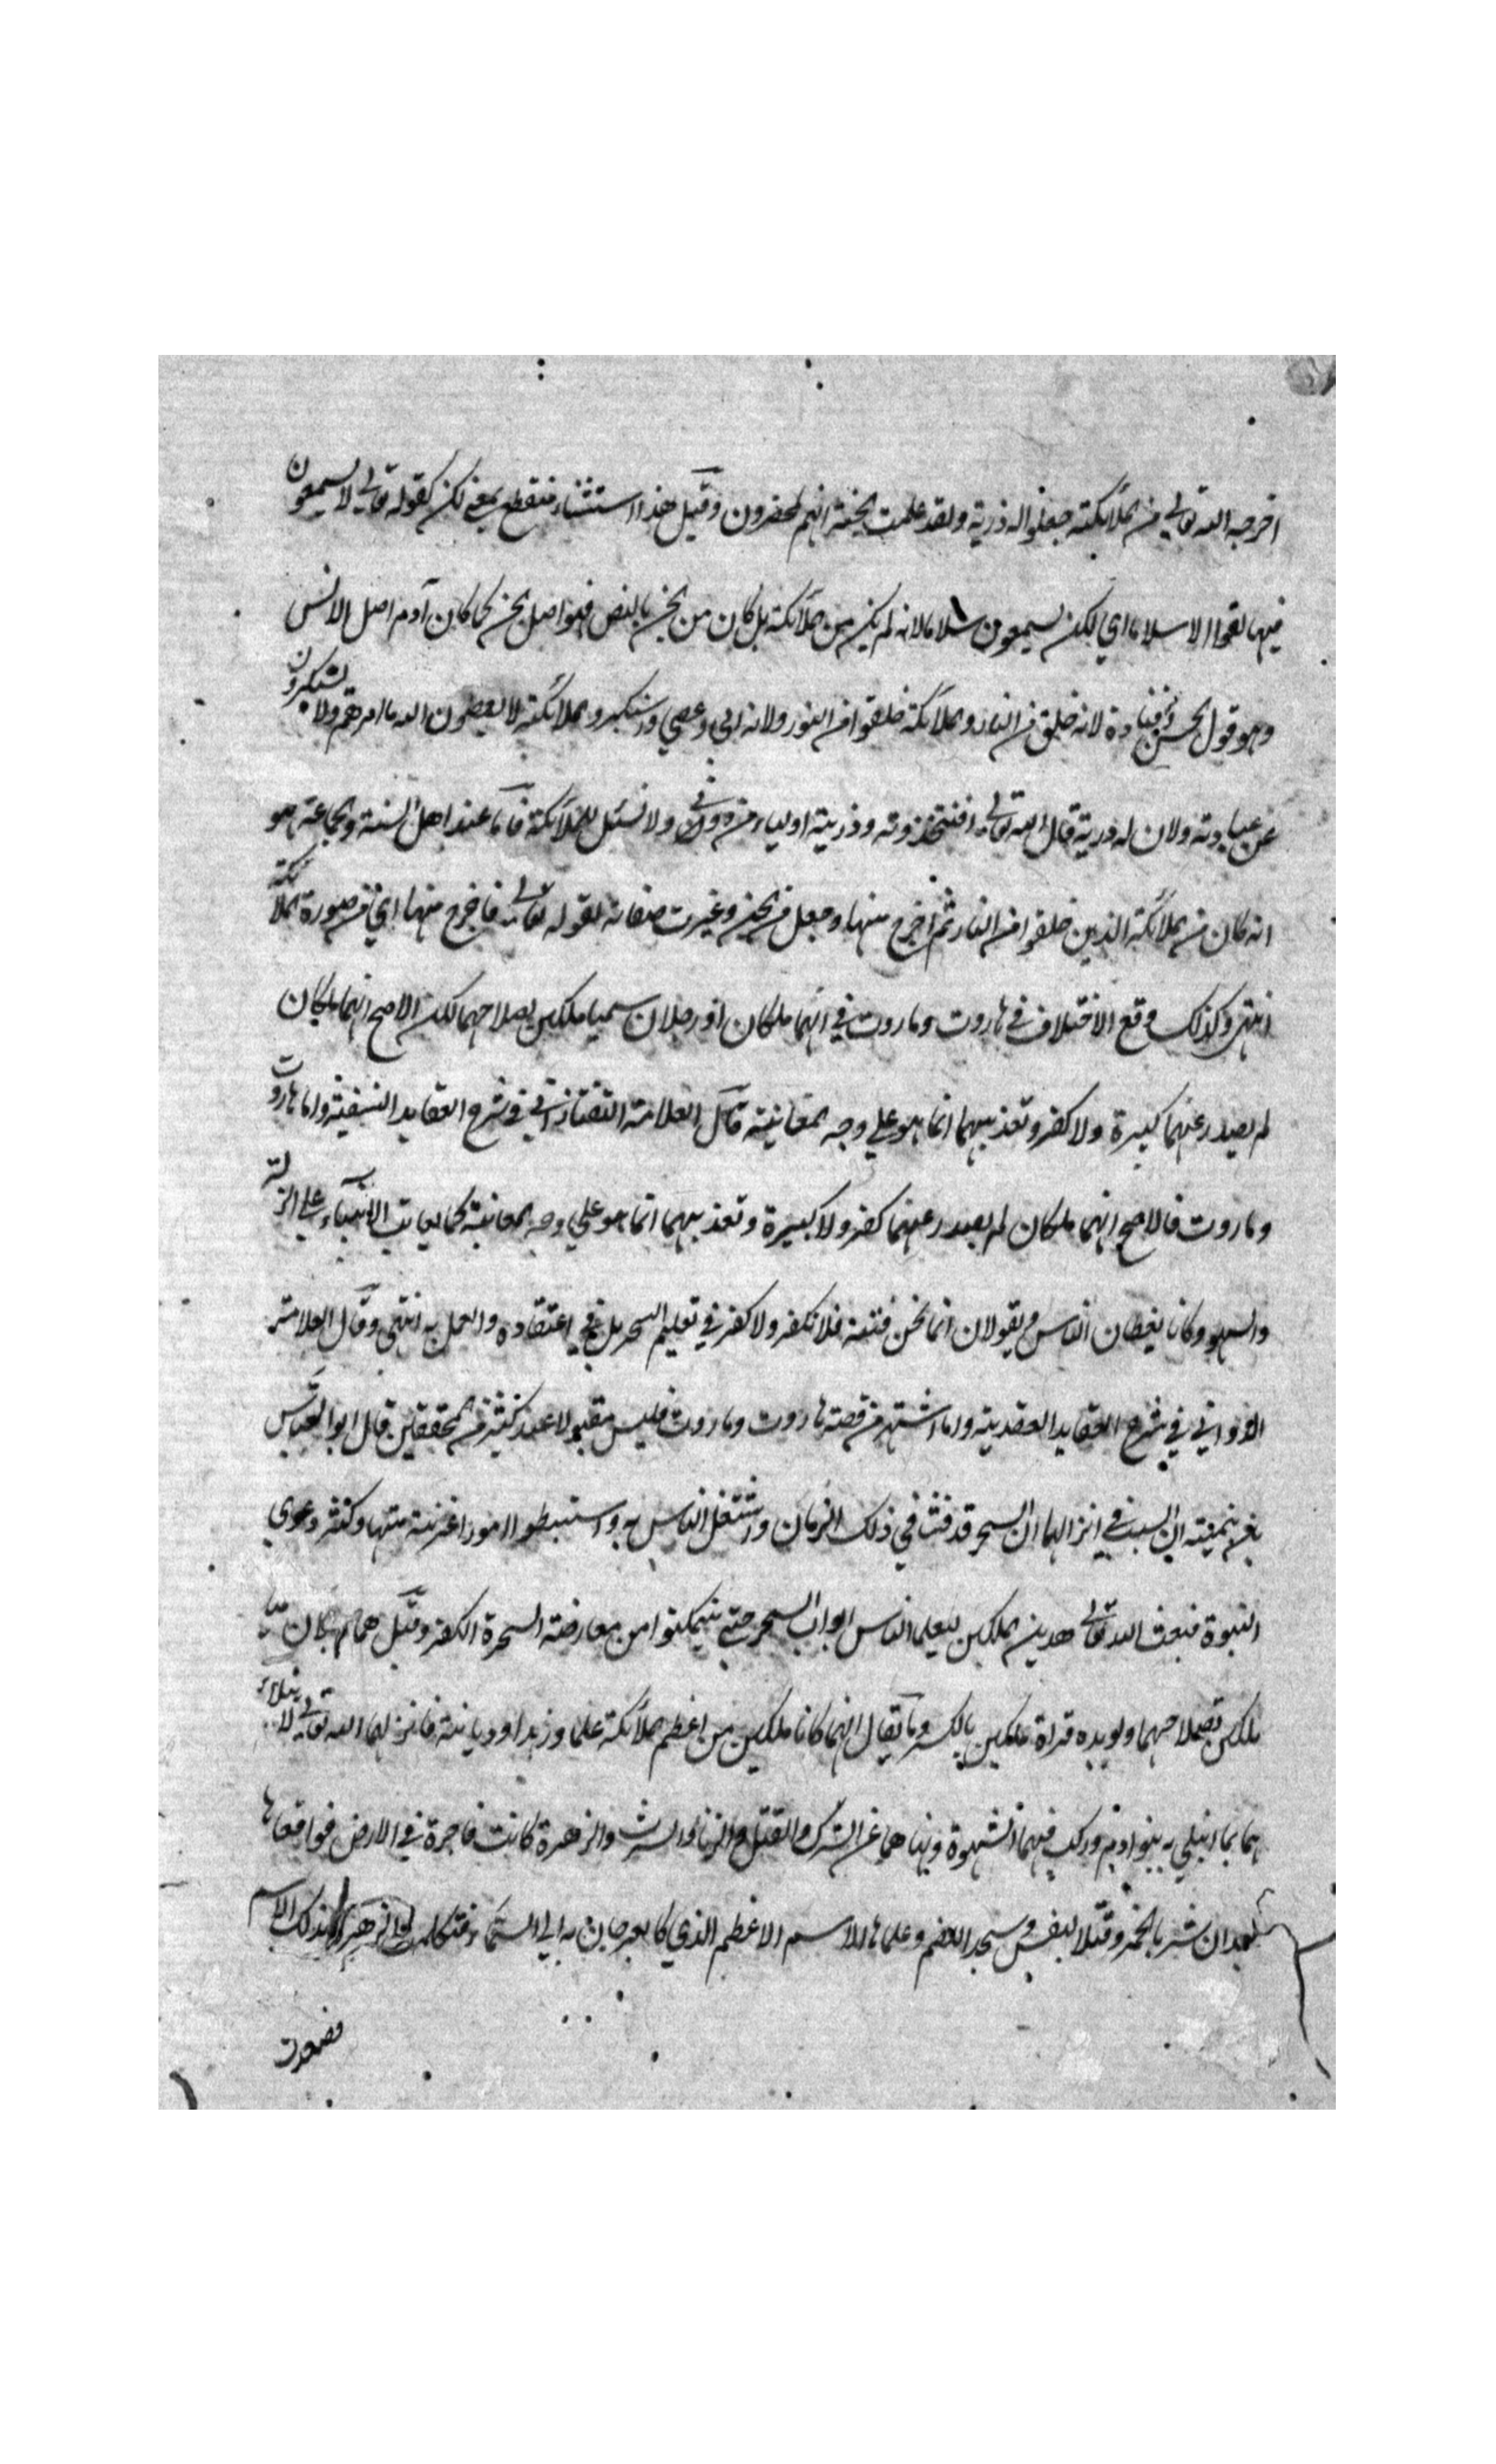 اخرجه الله تعالى من الملائكة جعلوا له ذرية ولقد علمت الجنة انهم لمحضرون وقيل هذا استثناء منقطع بمعنى لكن كقوله تعالى لا يسمعون
فيها لغوا الا سلاما اي لكن يسمعون سلاما لانه لم يكن من الملائكة بل كان من الجن بالنص فهو اصل الجن كما كان آدم اصل الانس
وهو قول الحسن وقتادة لانه خلق من النار والملائكة خلقوا من النور ولانه ابى وعصي واستكبر والملائكة لا يعصون الله ما امرهم ولا يستكبرون
عن عبادته ولان له ذرية قال الله تعالى افتتخذونه وذريته اولياء من دوني ولا نسل للملائكة فاما عند اهل السنة والجماعة هو
انه كان من الملائكة الذين خلقوا من النار ثم اخرج منها وجعل من الجن وغيرت صفاته لقوله تعالى فاخرج منها اي من صورة الملائكة
انتهى وكذلك وقع الاختلاف في هاروت وماروت في انهما ملكان او رجلان سميا ملكين بصلاحهما لكن الاصح انهما ملكان
لم يصدر عنهما كبيرة ولا كفر وتعذيبهما انما هو علي وجه المعاتبة قال العلامة التفتازاني في شرح العقايد النسفية واما هاروت
وماروت فالاصح انهما ملكان لم يصدر عنهما كفر ولا كبيرة وتعذيبهما انما هو علي وجه المعاتبة كما يعاتب الانبياء على الزلة
والسهو وكانا يعظان الناس ويقولان انما نحن فتنة فلا تكفر ولا كفر في تعليم السحر بل في اعتقاده والعمل به انتهى وقال العلامة
الدواني في شرح العقايد العضدية واما اشتهر من قصة هاروت وماروت فليس مقبولا عند كثير من المحققين قال ابو العباس
بن تيمية ان السبب في انزالهما ان السحر قد فشا في ذلك الزمان واشتغل الناس به واستنبطوا امورا غريبة منها وكثر دعوي
النبوة فبعث الله تعالى هذين الملكين ليعلما الناس ابواب السحر حتى يتمكنوا من معارضة السحرة الكفر وقيل هما رجلان سميا
ملكين بصلاحهما ويويده قراة ملكين بالكسر وما يقال انهما كانا ملكين من اعظم الملائكة علما وزهدا وديانة فانزلهما الله تعالى لابتلاء
هما بما ابتلي به بنو ادم وركب فيهما الشهوة ونهاهما عن الشرك والقتل والزنا والشرب والزهرة كانت فاجرة في الارض فواقعاها
بعد ان شربا الخمر وقتلا لنفس وسجدا لصنم وعلماها الاسم الاعظم الذي كانا يعرجان به الي السماء فتكلمت الزهرة بذلك الاسم
فصعدت